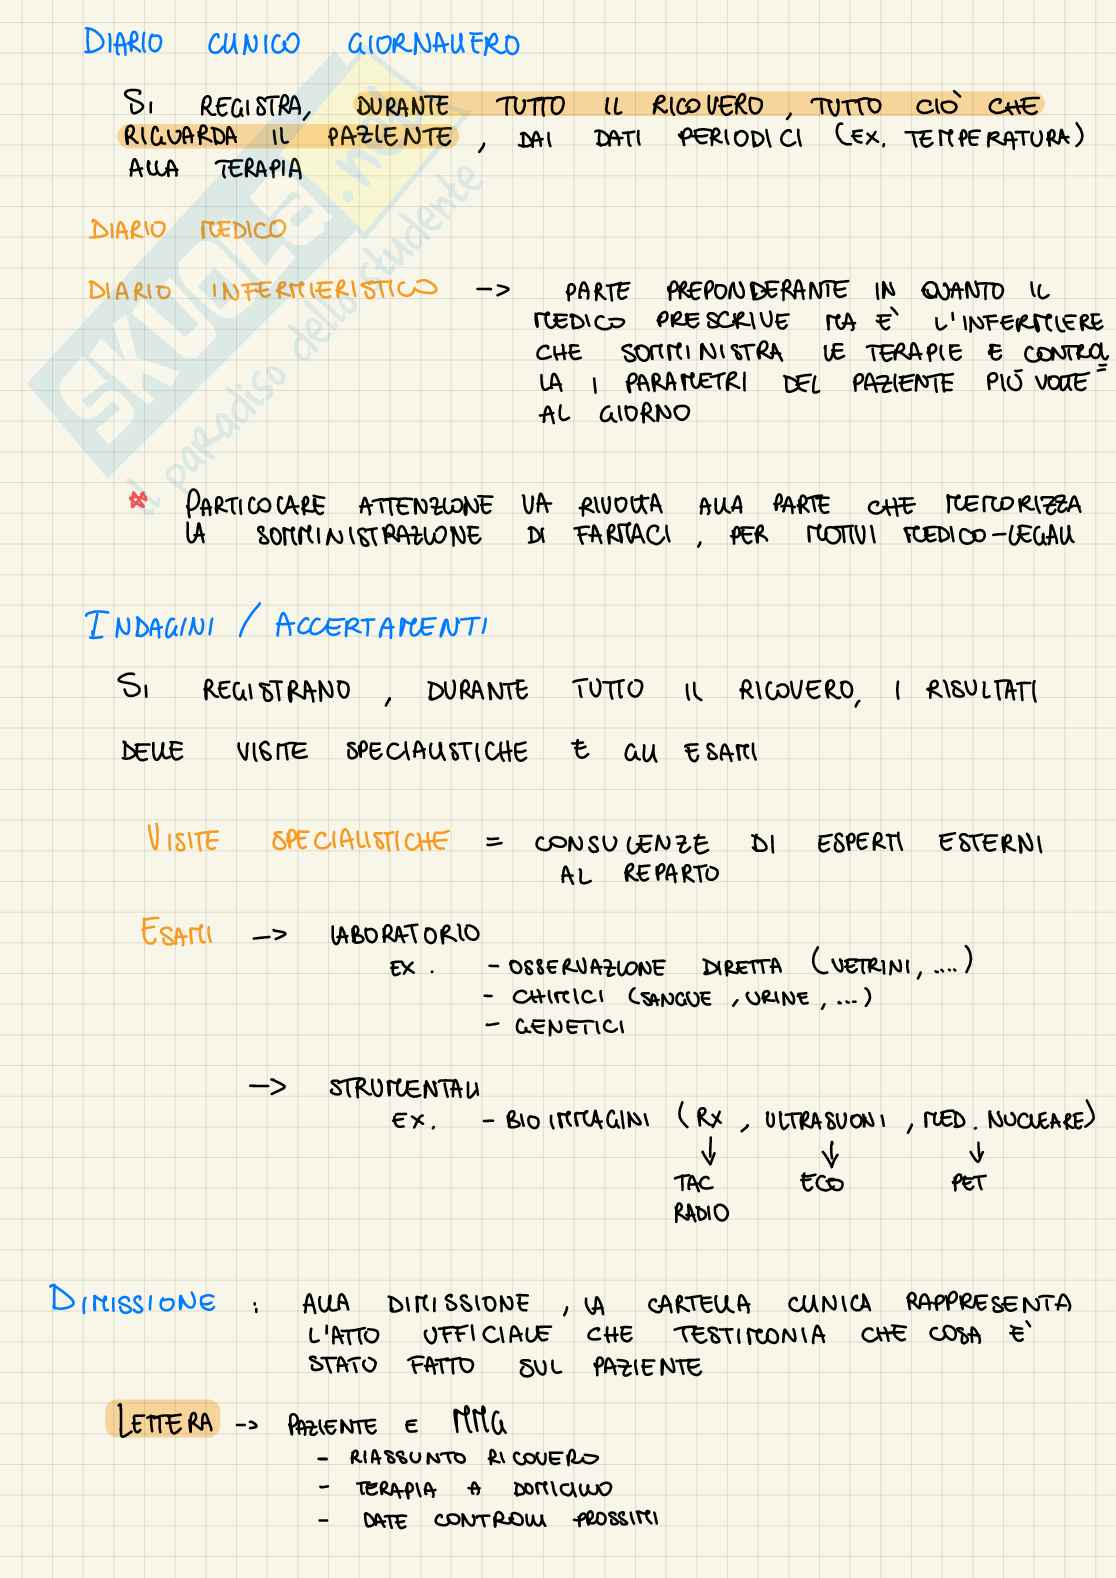 DIARIO CLINICO GIORNALIERO
SI REGISTRA, DURANTE TUTTO IL RICOVERO, TUTTO CIÒ CHE
RIGUARDA IL PAZIENTE, DAI DATI PERIODICI (EX. TEMPERATURA)
ALLA TERAPIA
DIARIO MEDICO
DIARIO INFERMIERISTICO -> PARTE PREPONDERANTE IN QUANTO IL
MEDICO PRESCRIVE MA È L'INFERMIERE
CHE SOMMINISTRA LE TERAPIE E CONTROL=
LA I PARAMETRI DEL PAZIENTE PIÙ VOLTE
AL GIORNO
* PARTICOLARE ATTENZIONE VA RIVOLTA ALLA PARTE CHE MEMORIZZA
LA SOMMINISTRAZIONE DI FARMACI, PER MOTIVI MEDICO-LEGALI
INDAGINI / ACCERTAMENTI
SI REGISTRANO, DURANTE TUTTO IL RICOVERO, I RISULTATI
DELLE VISITE SPECIALISTICHE E GLI ESAMI
VISITE SPECIALISTICHE = CONSULENZE DI ESPERTI ESTERNI
AL REPARTO
ESAMI -> LABORATORIO
EX. - OSSERVAZIONE DIRETTA (VETRINI, ....)
- CHIMICI (SANGUE, URINE, ...)
- GENETICI
-> STRUMENTALI
EX. - BIOIMMAGINI (RX, ULTRASUONI, MED. NUCLEARE)
↓ ↓ ↓
TAC ECO PET
RADIO
DIMISSIONE: ALLA DIMISSIONE, LA CARTELLA CLINICA RAPPRESENTA
L'ATTO UFFICIALE CHE TESTIMONIA CHE COSA È
STATO FATTO SUL PAZIENTE
LETTERA -> PAZIENTE E MMG
- RIASSUNTO RICOVERO
- TERAPIA A DOMICILIO
- DATE CONTROLLI PROSSIMI
SKUOLA.net
il paradiso dello studente